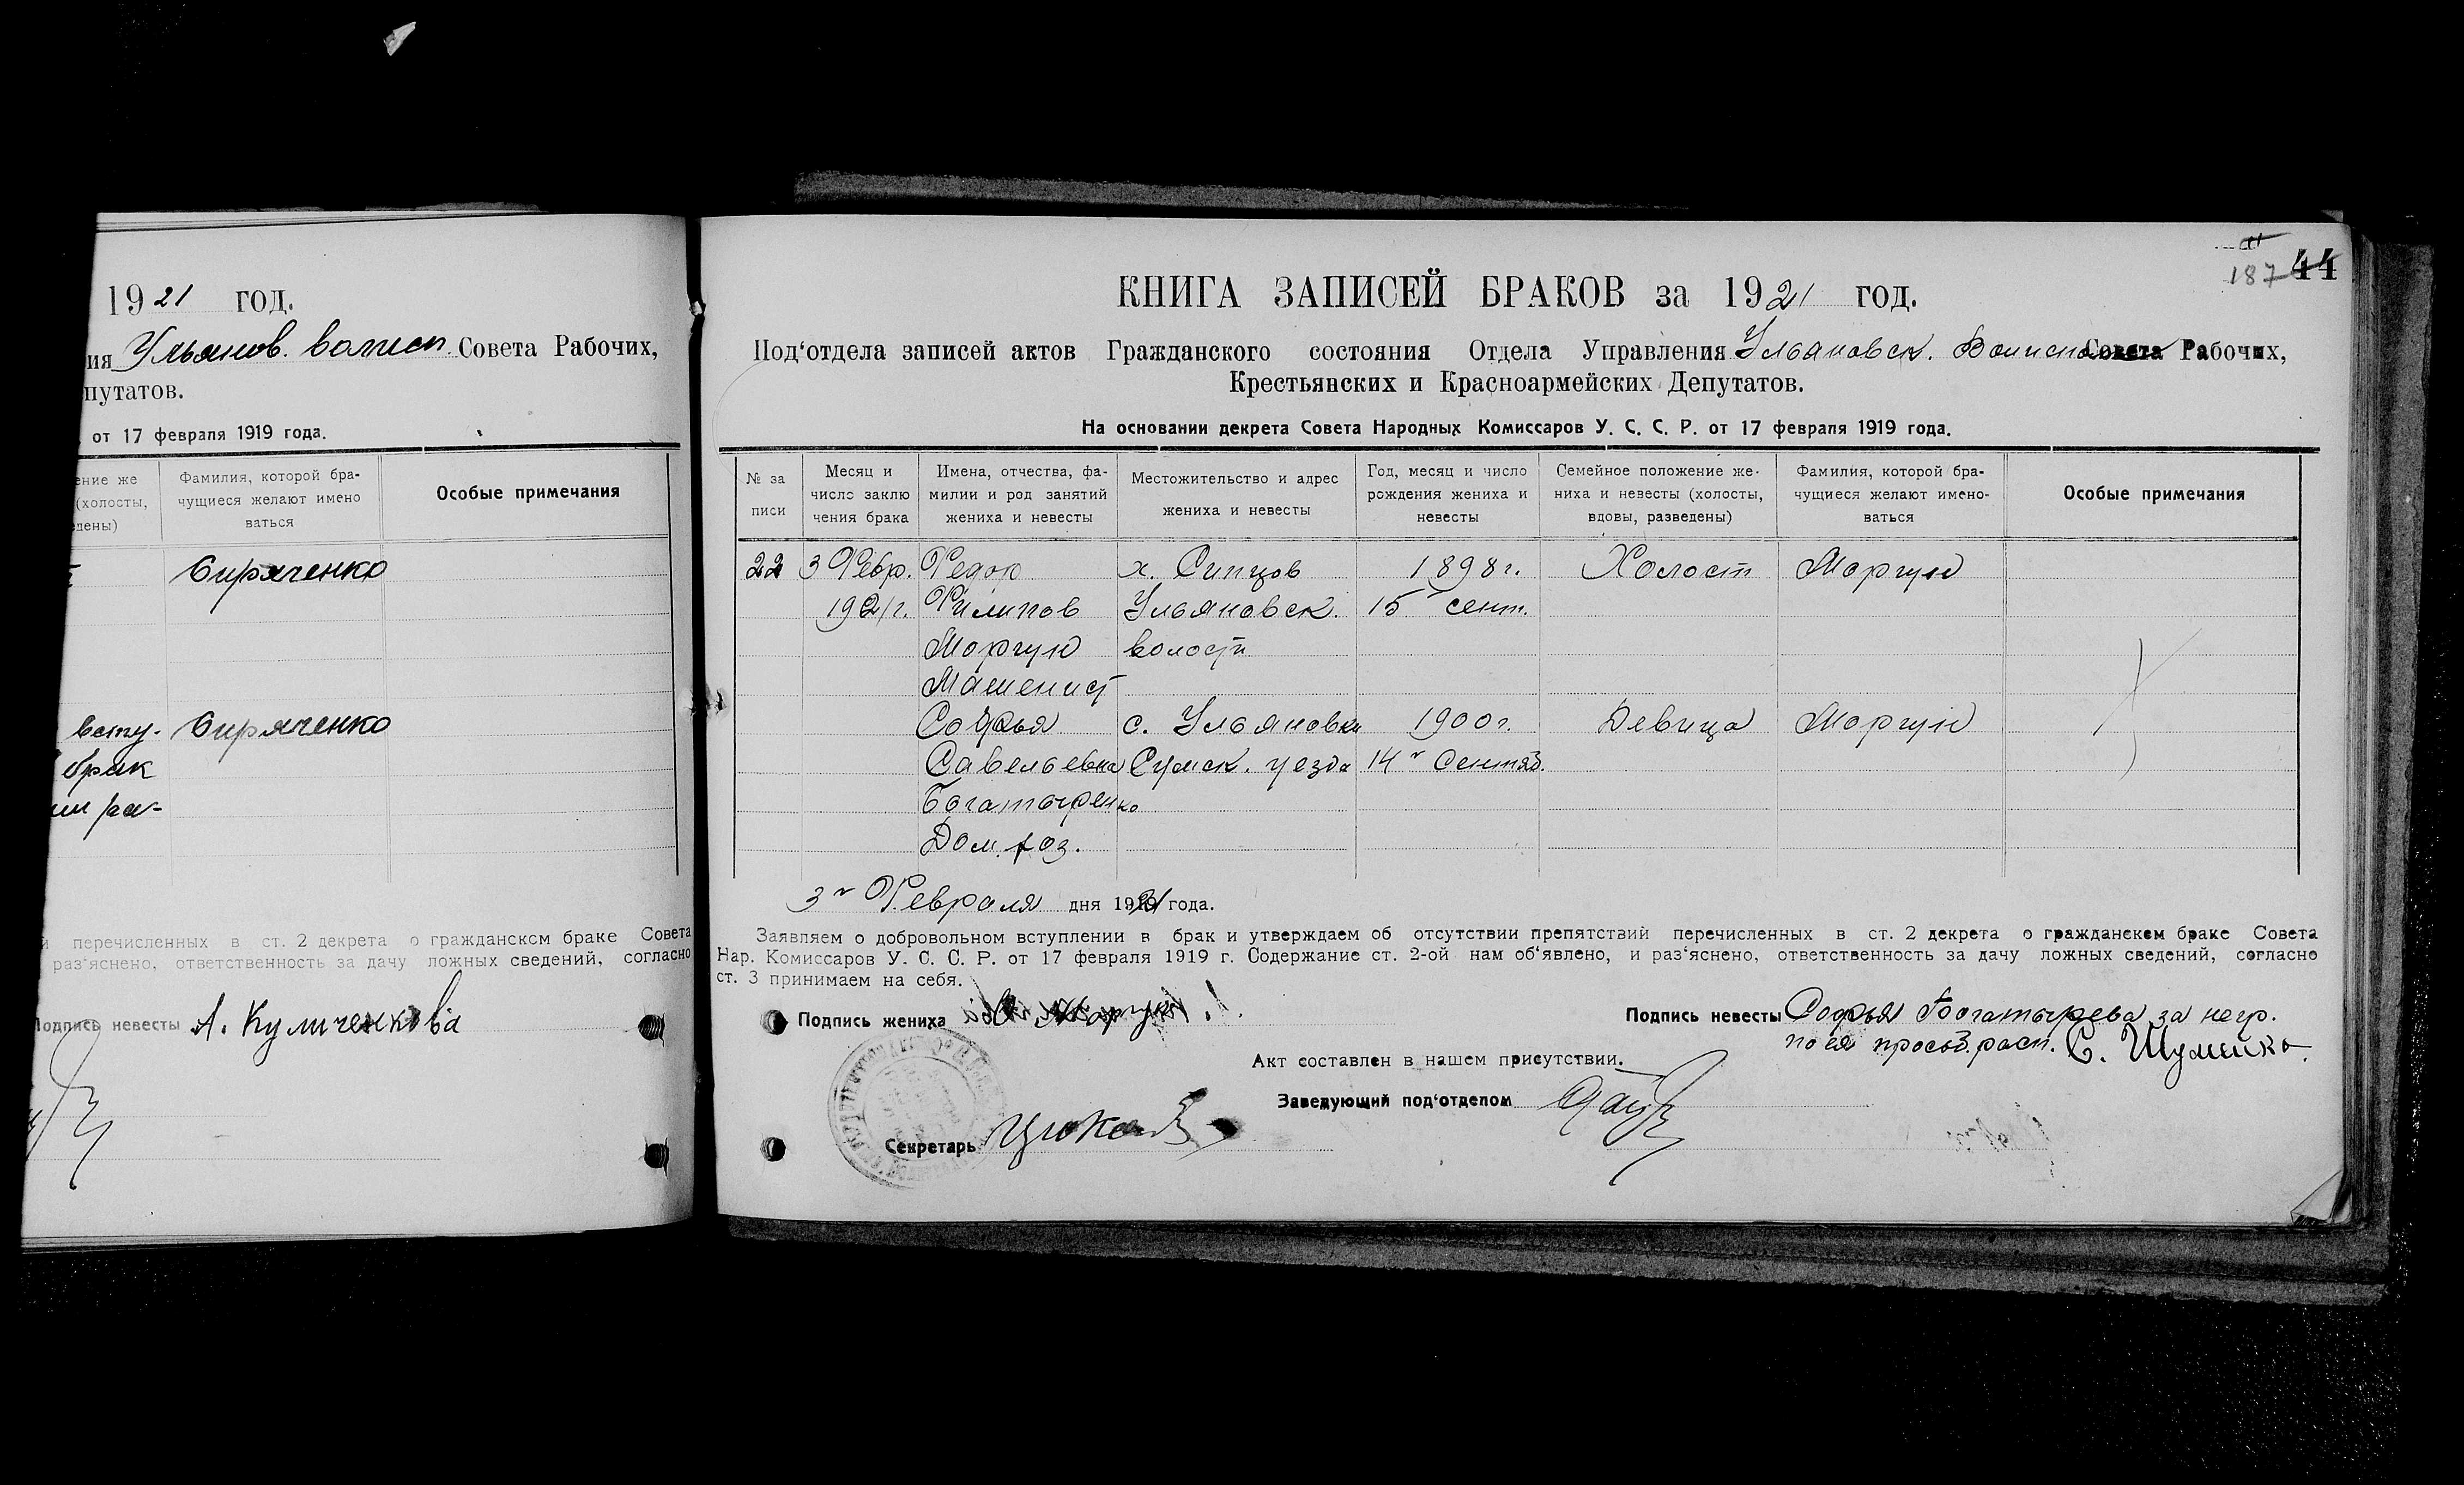 1921 год.
ия Ульянов. волисп. Совета Рабочих,
путатов.
от 17 февраля 1919 года.
ение же
(холосты,
дены)
Фамилия, которой бра-
чущиеся желают имено
ваться
Особые примечания
Сиряченко
всту- Сиряченко
брак
ра-
перечисленных в ст. 2 декрета о гражданском браке Совета
раз‘яснено, ответственность за дачу ложных сведений, согласно
Подпись невесты А. Куличенкова
187 44
КНИГА ЗАПИСЕЙ БРАКОВ за 1921 год.
Под‘отдела записей актов Гражданского состояния Отдела Управления Ульяновск. Волиспол Совета Рабочих,
Крестьянских и Красноармейских Депутатов.
На основании декрета Совета Народных Комиссаров У. С. С. Р. от 17 февраля 1919 года.
№ за
писи
Месяц и
число заклю
чения брака
Имена, отчества, фа-
милии и род занятий
жениха и невесты
Местожительство и адрес
жениха и невесты
Год, месяц и число
рождения жениха и
невесты
Семейное положение же-
ниха и невесты (холосты,
вдовы, разведены)
Фамилия, которой бра-
чущиеся желают имено-
ваться
Особые примечания
22 3 Февр. Федор х. Сипцов 1898 г. Холост Моргун
1921 г. Филипов Ульяновск. 15 сент.
Моргун волости
Машенист
Софья с. Ульяновки 1900 г. Девица Моргун
Савельевна Сумск. уезда 14 г Сентяб.
Богатыренко
Дом. хоз.
3 г Февраля дня 1921 года.
Заявляем о добровольном вступлении в брак и утверждаем об отсутствии препятствий перечисленных в ст. 2 декрета о гражданском браке Совета
Нар. Комиссаров У. С. С. Р. от 17 февраля 1919 г. Содержание ст. 2-ой нам об‘явлено, и раз‘яснено, ответственность за дачу ложных сведений, согласно
ст. 3 принимаем на себя.
Подпись жениха Моргун
Подпись невесты Софья Богатырева за негр.
по ея просьб. расп. С. Шуменко.
Акт составлен в нашем присутствии.
Заведующий под‘отделом
Секретарь